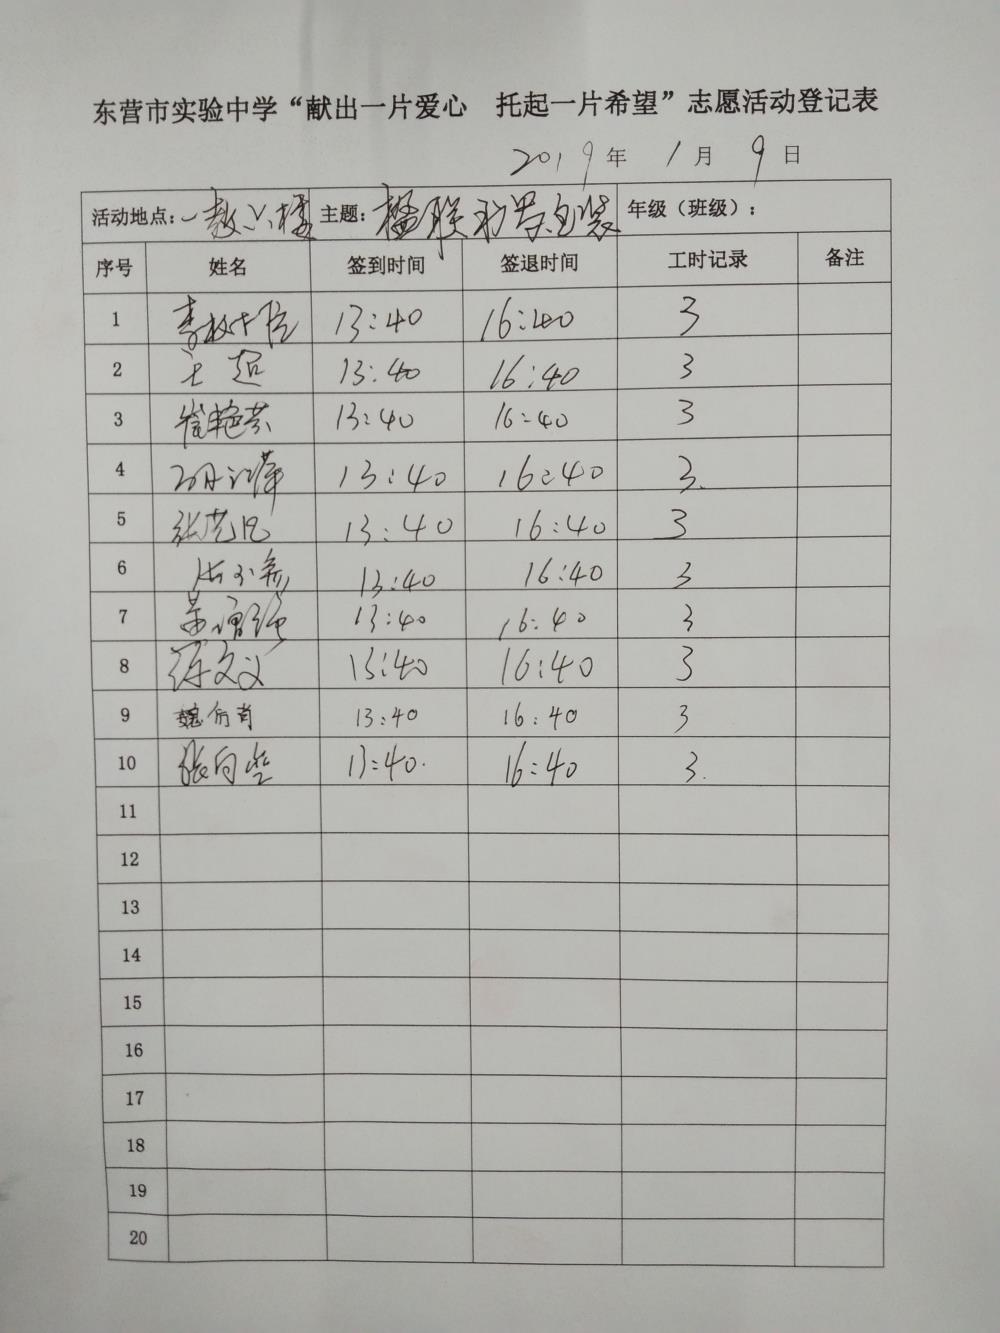 东营市实验中学“献出一片爱心 托起一片希望”志愿活动登记表
2019年 1月 9日
活动地点: 主题: 楹联 包装 年级（班级）:
序号 姓名 签到时间 签退时间 工时记录 备注
1 13:40 16:40 3
2 王超 13:40 16:40 3
3 崔艳芬 13:40 16:40 3
4 13:40 16:40 3.
5 13:40 16:40 3
6 13:40 16:40 3
7 13:40 16:40 3
8 13:40 16:40 3
9 13:40 16:40 3
10 13:40. 16:40 3.
11
12
13
14
15
16
17
18
19
20